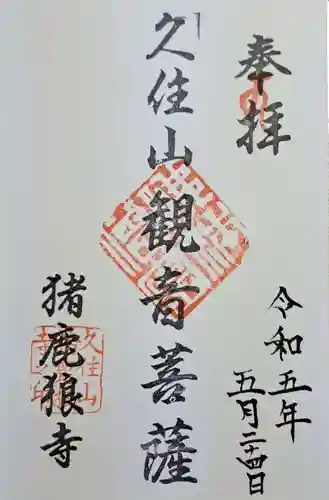 奉拝
令和五年
五月二十四日
久住山観音菩薩
猪鹿狼寺
久住山